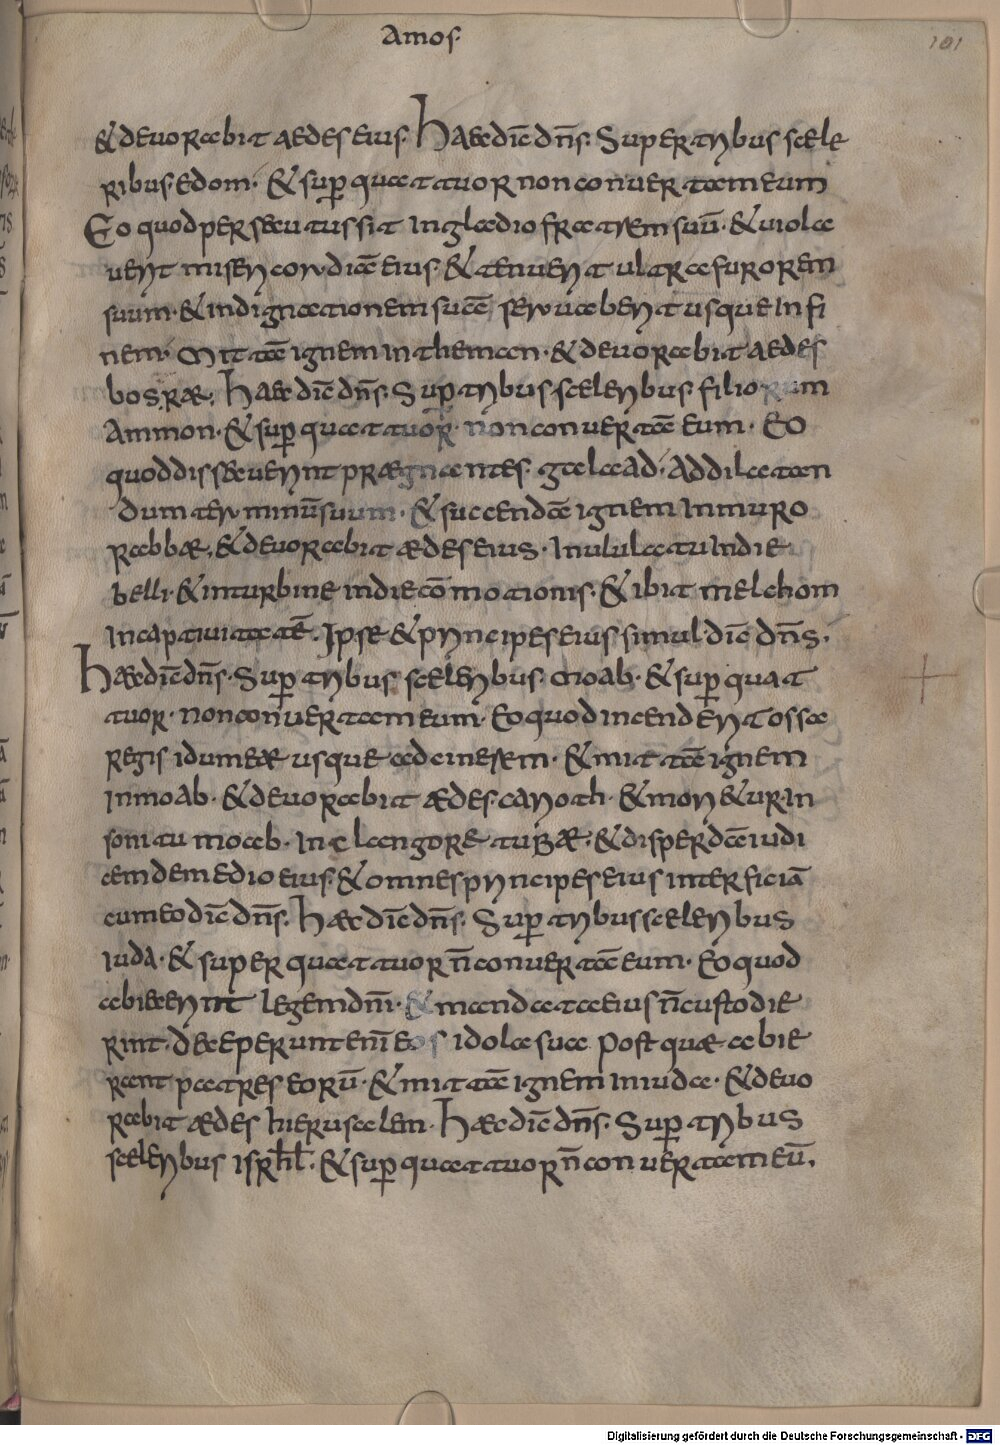 Amos.
101
& devorabit aedes eius. Haec dic̄ dn̄s. Super tribus scele
ribus edom. & sup̄ quattuor non convertam eum
Eo quod persecutus sit in gladio fratrem suū. & viola
verit misericordiā eius. & tenuerit ultra furorem
suum. & indignationem suā servaberit usque in fi
nem. Mittā ignem in theman. & devorabit aedes
bosrae. Haec dic̄ dn̄s. Sup̄ tribus sceleribus filiorum
Ammon. & sup̄ quattuor non convertā eum. Eo
quod dissecuerint praegnantes galaad. Ad dilatan
dum terminū suum. & succendā ignem in muro
rabbae. & devorabit aedes eius. In ululatu in die
belli. & in turbine in die cōmotionis. & ibit melchom
in captivitatē. Ipse & principes eius simul dic̄ dn̄s.
Haec dic̄ dn̄s. Sup̄ tribus sceleribus moab. & sup̄ quat
tuor. non convertam eum. Eo quod incenderit ossa
regis idumeae usque ad cinerem. & mittā ignem
in moab. & devorabit aedes carioth. & mori&ur in
sonitu moab. In clangore tubae. & disperdā iudi
cem de medio eius. & omnes principes eius interficiā
cum eo dic̄ dn̄s. Haec dic̄ dn̄s. Sup̄ tribus sceleribus
iuda. & super quattuor n̄ convertā eum. Eo quod
abiecerint legem dn̄i. & mandata eius n̄ custodie
rint. deceperunt enī eos idola sua post quae abie
rant patres eorū. & mittā ignem in iuda. & devo
rabit aedes hierusalem. Haec dic̄ dn̄s. Sup̄ tribus
sceleribus isrh̄l. & sup̄ quattuor n̄ convertam eū.
Digitalisierung gefördert durch die Deutsche Forschungsgemeinschaft - DFG